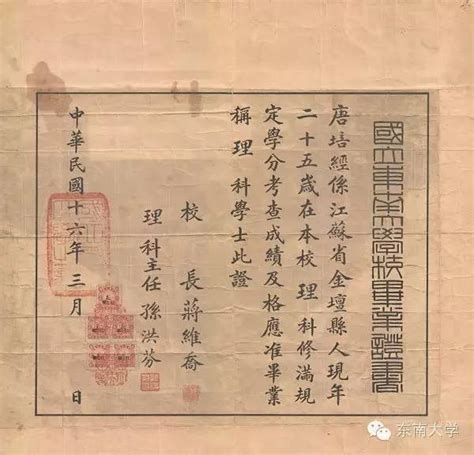 國立東南大學校畢業證書
唐培經係江蘇省金壇縣人現年
二十五歲在本校理科修滿規
定學分考查成績及格應准畢業
稱理科學士此證
校長蔣維喬
理科主任孫洪芬
中華民國十六年三月 日
东南大学